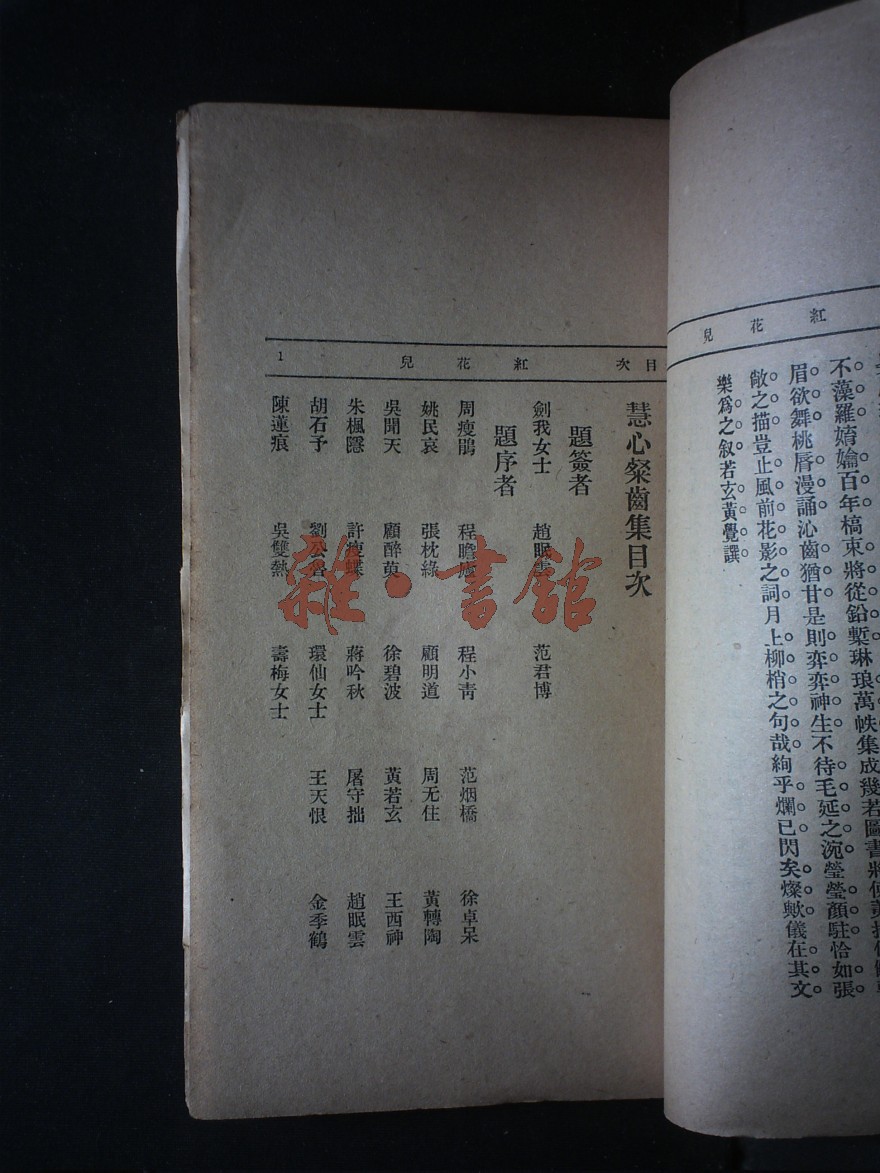 紅花兒
不藻羅婧婾百年槁束將從鉛槧琳琅萬帙集成幾若圖書將
眉欲舞桃唇漫誦沁齒猶甘是則弈弈神生不待毛延之涴瑩瑩顏駐恰如張
敞之描豈止風前花影之詞月上柳梢之句哉絢乎爛已閃矣燦歟儀在其文
樂爲之叙若玄黃覺譔
目次 紅花兒 1
慧心粲齒集目次
題簽者
劍我女士 趙眠雲 范君博
題序者
周瘦鵑 程瞻廬 程小青 范烟橋 徐卓呆
姚民哀 張枕綠 顧明道 周无住 黃轉陶
吳聞天 顧醉萸 徐碧波 黃若玄 王西神
朱楓隱 許瘦蝶 蔣吟秋 屠守拙 趙眠雲
胡石予 劉公魯 環仙女士 王天恨 金季鶴
陳蓮痕 吳雙熱 壽梅女士
雜·書館